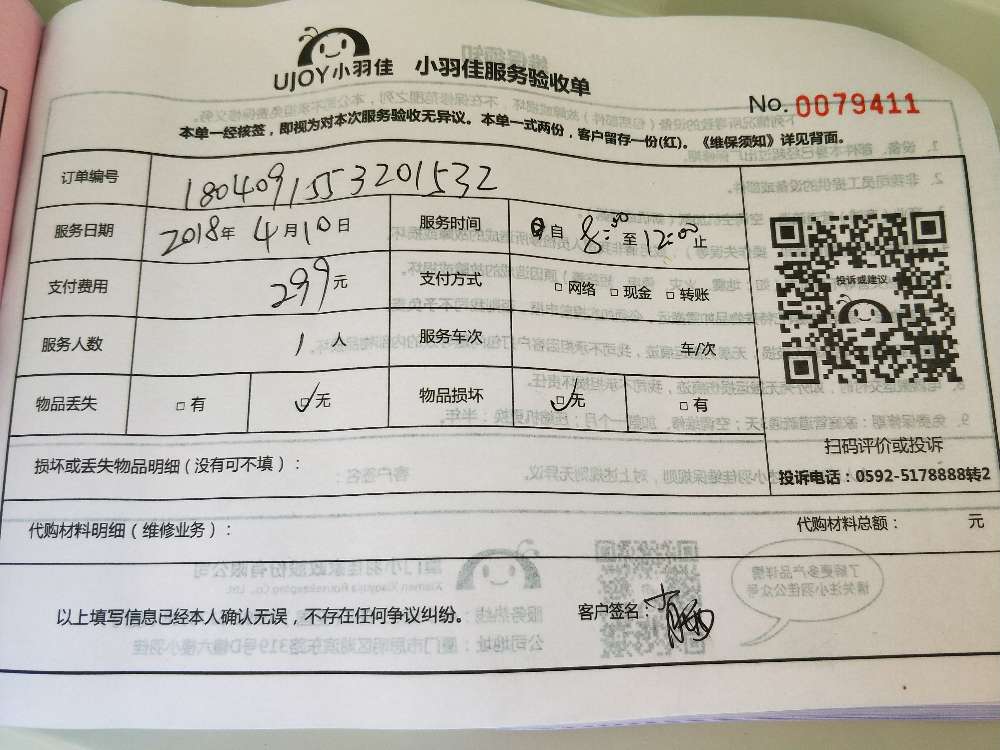 UJOY小羽佳 小羽佳服务验收单
No. 0079411
本单一经核签，即视为对本次服务验收无异议。本单一式两份，客户留存一份(红)。《维保须知》详见背面。
订单编号 1804091553201532
服务日期 2018年 4月10日 服务时间 自 8:00 至 12:00 止
支付费用 299元 支付方式 □网络 □现金 □转账
投诉或建议
服务人数 1人 服务车次 车/次
物品丢失 □有 ☑无 物品损坏 ☑无 □有
扫码评价或投诉
损坏或丢失物品明细（没有可不填）：
投诉电话：0592-5178888转2
代购材料明细（维修业务）： 代购材料总额： 元
以上填写信息已经本人确认无误，不存在任何争议纠纷。 客户签名：